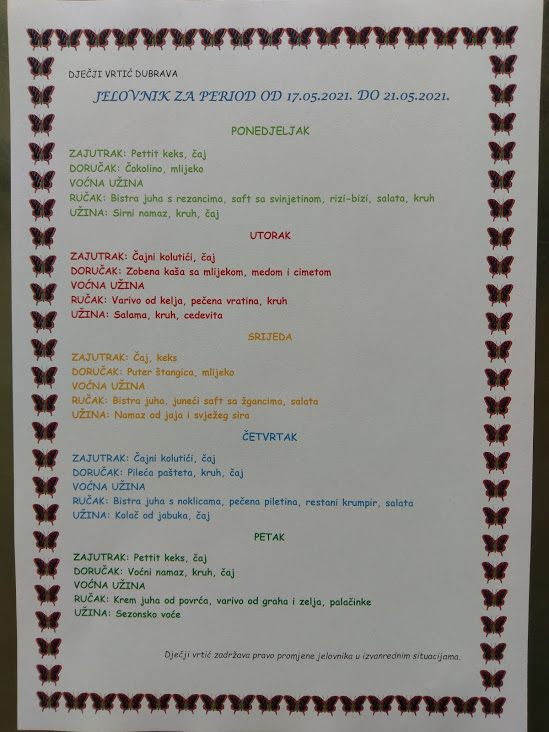 DJEČJI VRTIĆ DUBRAVA
JELOVNIK ZA PERIOD OD 17.05.2021. DO 21.05.2021.
PONEDJELJAK
ZAJUTRAK: Pettit keks, čaj
DORUČAK: Čokolino, mlijeko
VOĆNA UŽINA
RUČAK: Bistra juha s rezancima, saft sa svinjetinom, rizi-bizi, salata, kruh
UŽINA: Sirni namaz, kruh, čaj
UTORAK
ZAJUTRAK: Čajni kolutići, čaj
DORUČAK: Zobena kaša sa mlijekom, medom i cimetom
VOĆNA UŽINA
RUČAK: Varivo od kelja, pečena vratina, kruh
UŽINA: Salama, kruh, cedevita
SRIJEDA
ZAJUTRAK: Čaj, keks
DORUČAK: Puter štangica, mlijeko
VOĆNA UŽINA
RUČAK: Bistra juha, juneći saft sa žgancima, salata
UŽINA: Namaz od jaja i svježeg sira
ČETVRTAK
ZAJUTRAK: Čajni kolutići, čaj
DORUČAK: Pileća pašteta, kruh, čaj
VOĆNA UŽINA
RUČAK: Bistra juha s noklicama, pečena piletina, restani krumpir, salata
UŽINA: Kolač od jabuka, čaj
PETAK
ZAJUTRAK: Pettit keks, čaj
DORUČAK: Voćni namaz, kruh, čaj
VOĆNA UŽINA
RUČAK: Krem juha od povrća, varivo od graha i zelja, palačinke
UŽINA: Sezonsko voće
Dječji vrtić zadržava pravo promjene jelovnika u izvanrednim situacijama.